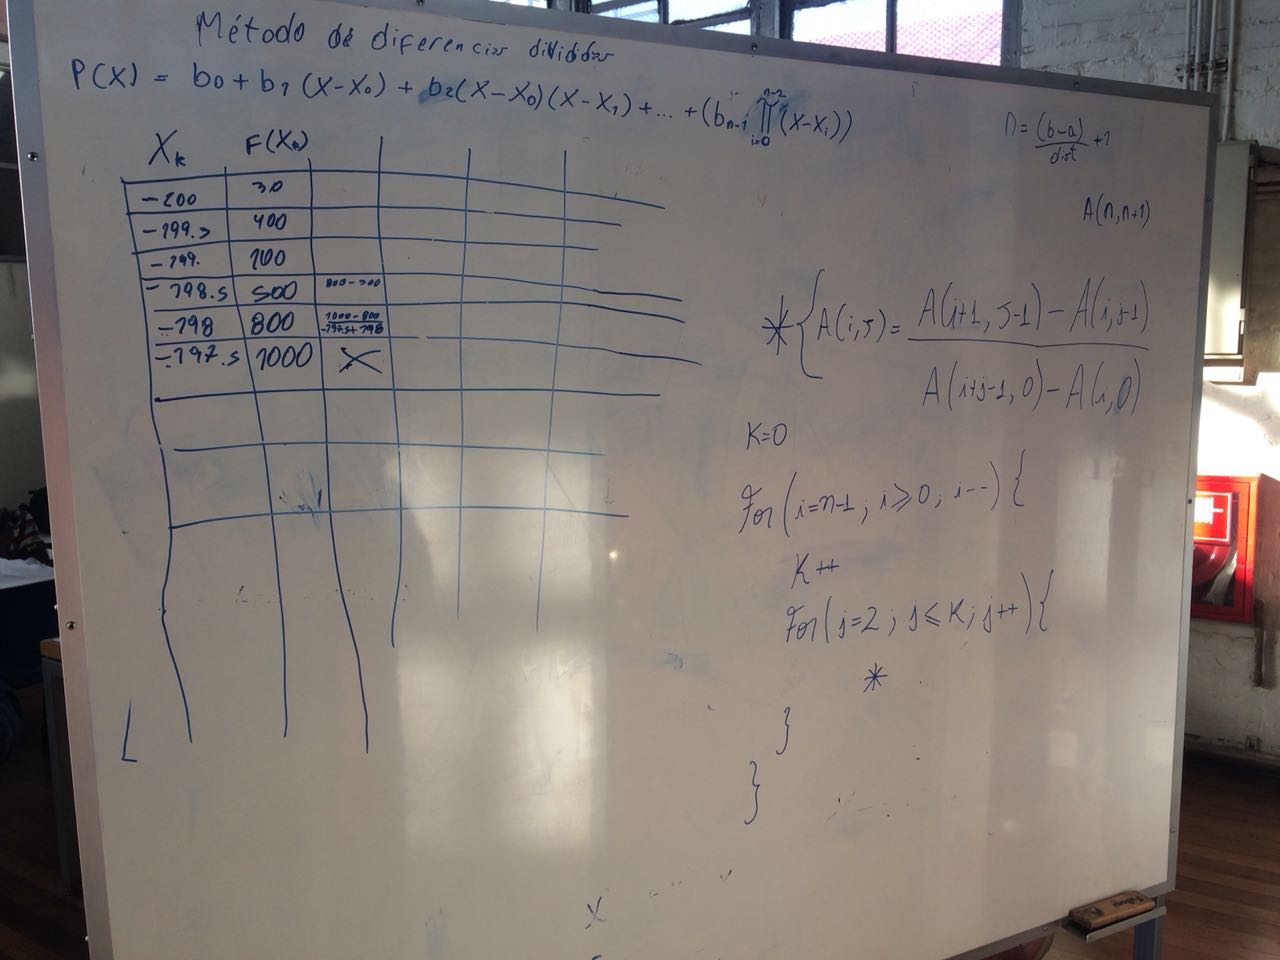 Método de diferencias divididas
P(X) = b0 + b1 (X-X0) + b2(X-X0)(X-X1) + ... + (bn-1 ∏ i=0 n-2 (X-Xi))
n = (b-a)/dist + 1
A(n, n+1)
Xk F(Xk)
-200 30
-199.5 400
-199. 100
-198.5 500 800-500
-198 800 1000-800/-197.5+198
-197.5 1000 X
* { A(i,j) = A(i+1, j-1) - A(i, j-1) / A(i+j-1, 0) - A(i, 0)
K=0
For (i=n-1 ; i≥0 ; i--) {
K++
For (j=2 ; j≤K ; j++) {
*
}
}
X